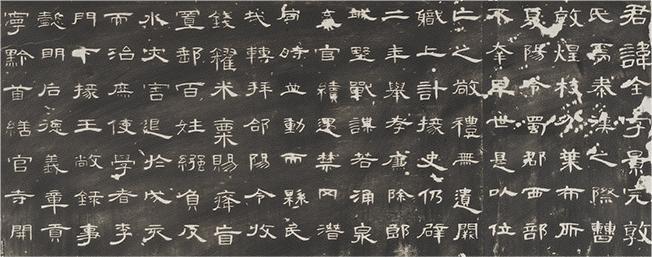 君諱全字景完敦
氏焉秦漢之際曹
敦煌枝分葉布所
夏陽令蜀郡西部
不幸早世是以位
亡之敬禮無遺闕
職上計掾史仍辟
二年舉孝廉除郎
城野戰謀若涌泉
棄官續遇禁网潛
同時並動而縣民
哉轉拜郃陽令收
錢糴米粟賜癃盲
置郵百姓繈負反
水灾害退於戌亥
而治庶使學者李
門下掾王敞錄事
懿明后德義章貢
寧黔首繕官寺開